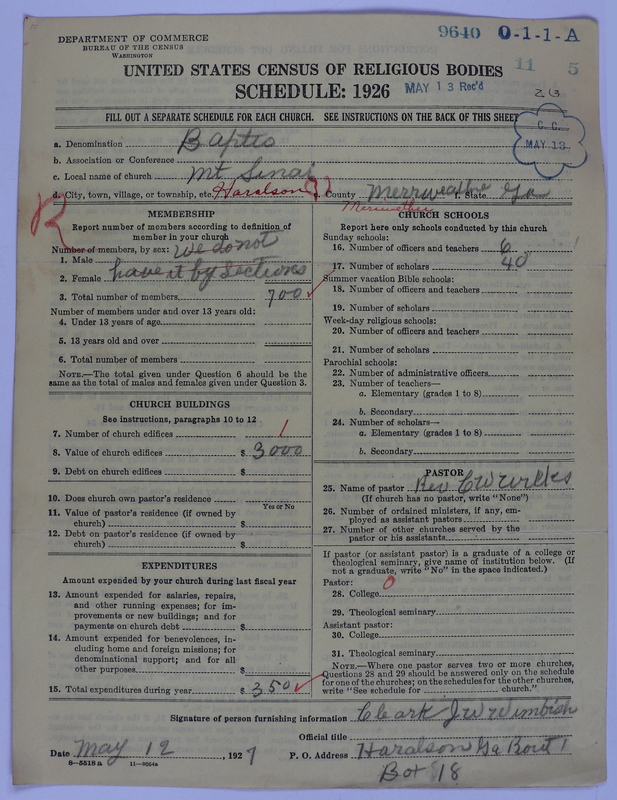 DEPARTMENT OF COMMERCE
BUREAU OF THE CENSUS
WASHINGTON
9640 0-1-1-A
11 5
UNITED STATES CENSUS OF RELIGIOUS BODIES
SCHEDULE: 1926
MAY 13 Rec'd
FILL OUT A SEPARATE SCHEDULE FOR EACH CHURCH. SEE INSTRUCTIONS ON THE BACK OF THIS SHEET
C. C.
MAY 13
a. Denomination Baptis
b. Association or Conference
c. Local name of church Mt Sinai
d. City, town, village, or township, etc. Haralson e. County Merriweather f. State Ga
Meriwether
MEMBERSHIP
Report number of members according to definition of
member in your church
Number of members, by sex: We do not
1. Male
have it by Sections
2. Female
3. Total number of members 700
Number of members under and over 13 years old:
4. Under 13 years of age
5. 13 years old and over
6. Total number of members
NOTE.—The total given under Question 6 should be the
same as the total of males and females given under Question 3.
CHURCH BUILDINGS
See instructions, paragraphs 10 to 12
7. Number of church edifices 1
8. Value of church edifices $ 3000
9. Debt on church edifices $
10. Does church own pastor's residence
Yes or No
11. Value of pastor's residence (if owned by
church) $
12. Debt on pastor's residence (if owned by
church) $
EXPENDITURES
Amount expended by your church during last fiscal year
13. Amount expended for salaries, repairs,
and other running expenses; for im-
provements or new buildings; and for
payments on church debt $
14. Amount expended for benevolences, in-
cluding home and foreign missions; for
denominational support; and for all
other purposes $
15. Total expenditures during year $ 350
CHURCH SCHOOLS
Report here only schools conducted by this church
Sunday schools:
16. Number of officers and teachers 6
17. Number of scholars 40
Summer vacation Bible schools:
18. Number of officers and teachers
19. Number of scholars
Week-day religious schools:
20. Number of officers and teachers
21. Number of scholars
Parochial schools:
22. Number of administrative officers
23. Number of teachers—
a. Elementary (grades 1 to 8)
b. Secondary
24. Number of scholars—
a. Elementary (grades 1 to 8)
b. Secondary
PASTOR
25. Name of pastor Rev C W Wilkes
(If church has no pastor, write "None")
26. Number of ordained ministers, if any, em-
ployed as assistant pastors
27. Number of other churches served by the
pastor or his assistants
If pastor (or assistant pastor) is a graduate of a college or
theological seminary, give name of institution below. (If
not a graduate, write "No" in the space indicated.)
Pastor: 0
28. College
29. Theological seminary
Assistant pastor:
30. College
31. Theological seminary
NOTE.—Where one pastor serves two or more churches,
Questions 28 and 29 should be answered only on the schedule
for one of the churches; on the schedules for the other churches,
write "See schedule for church."
Signature of person furnishing information Cleark J W Wimbish
Official title
Date May 12, 1927 P. O. Address Haralson Ga Rout 1
8—5518 a 11—9864a
Box 18